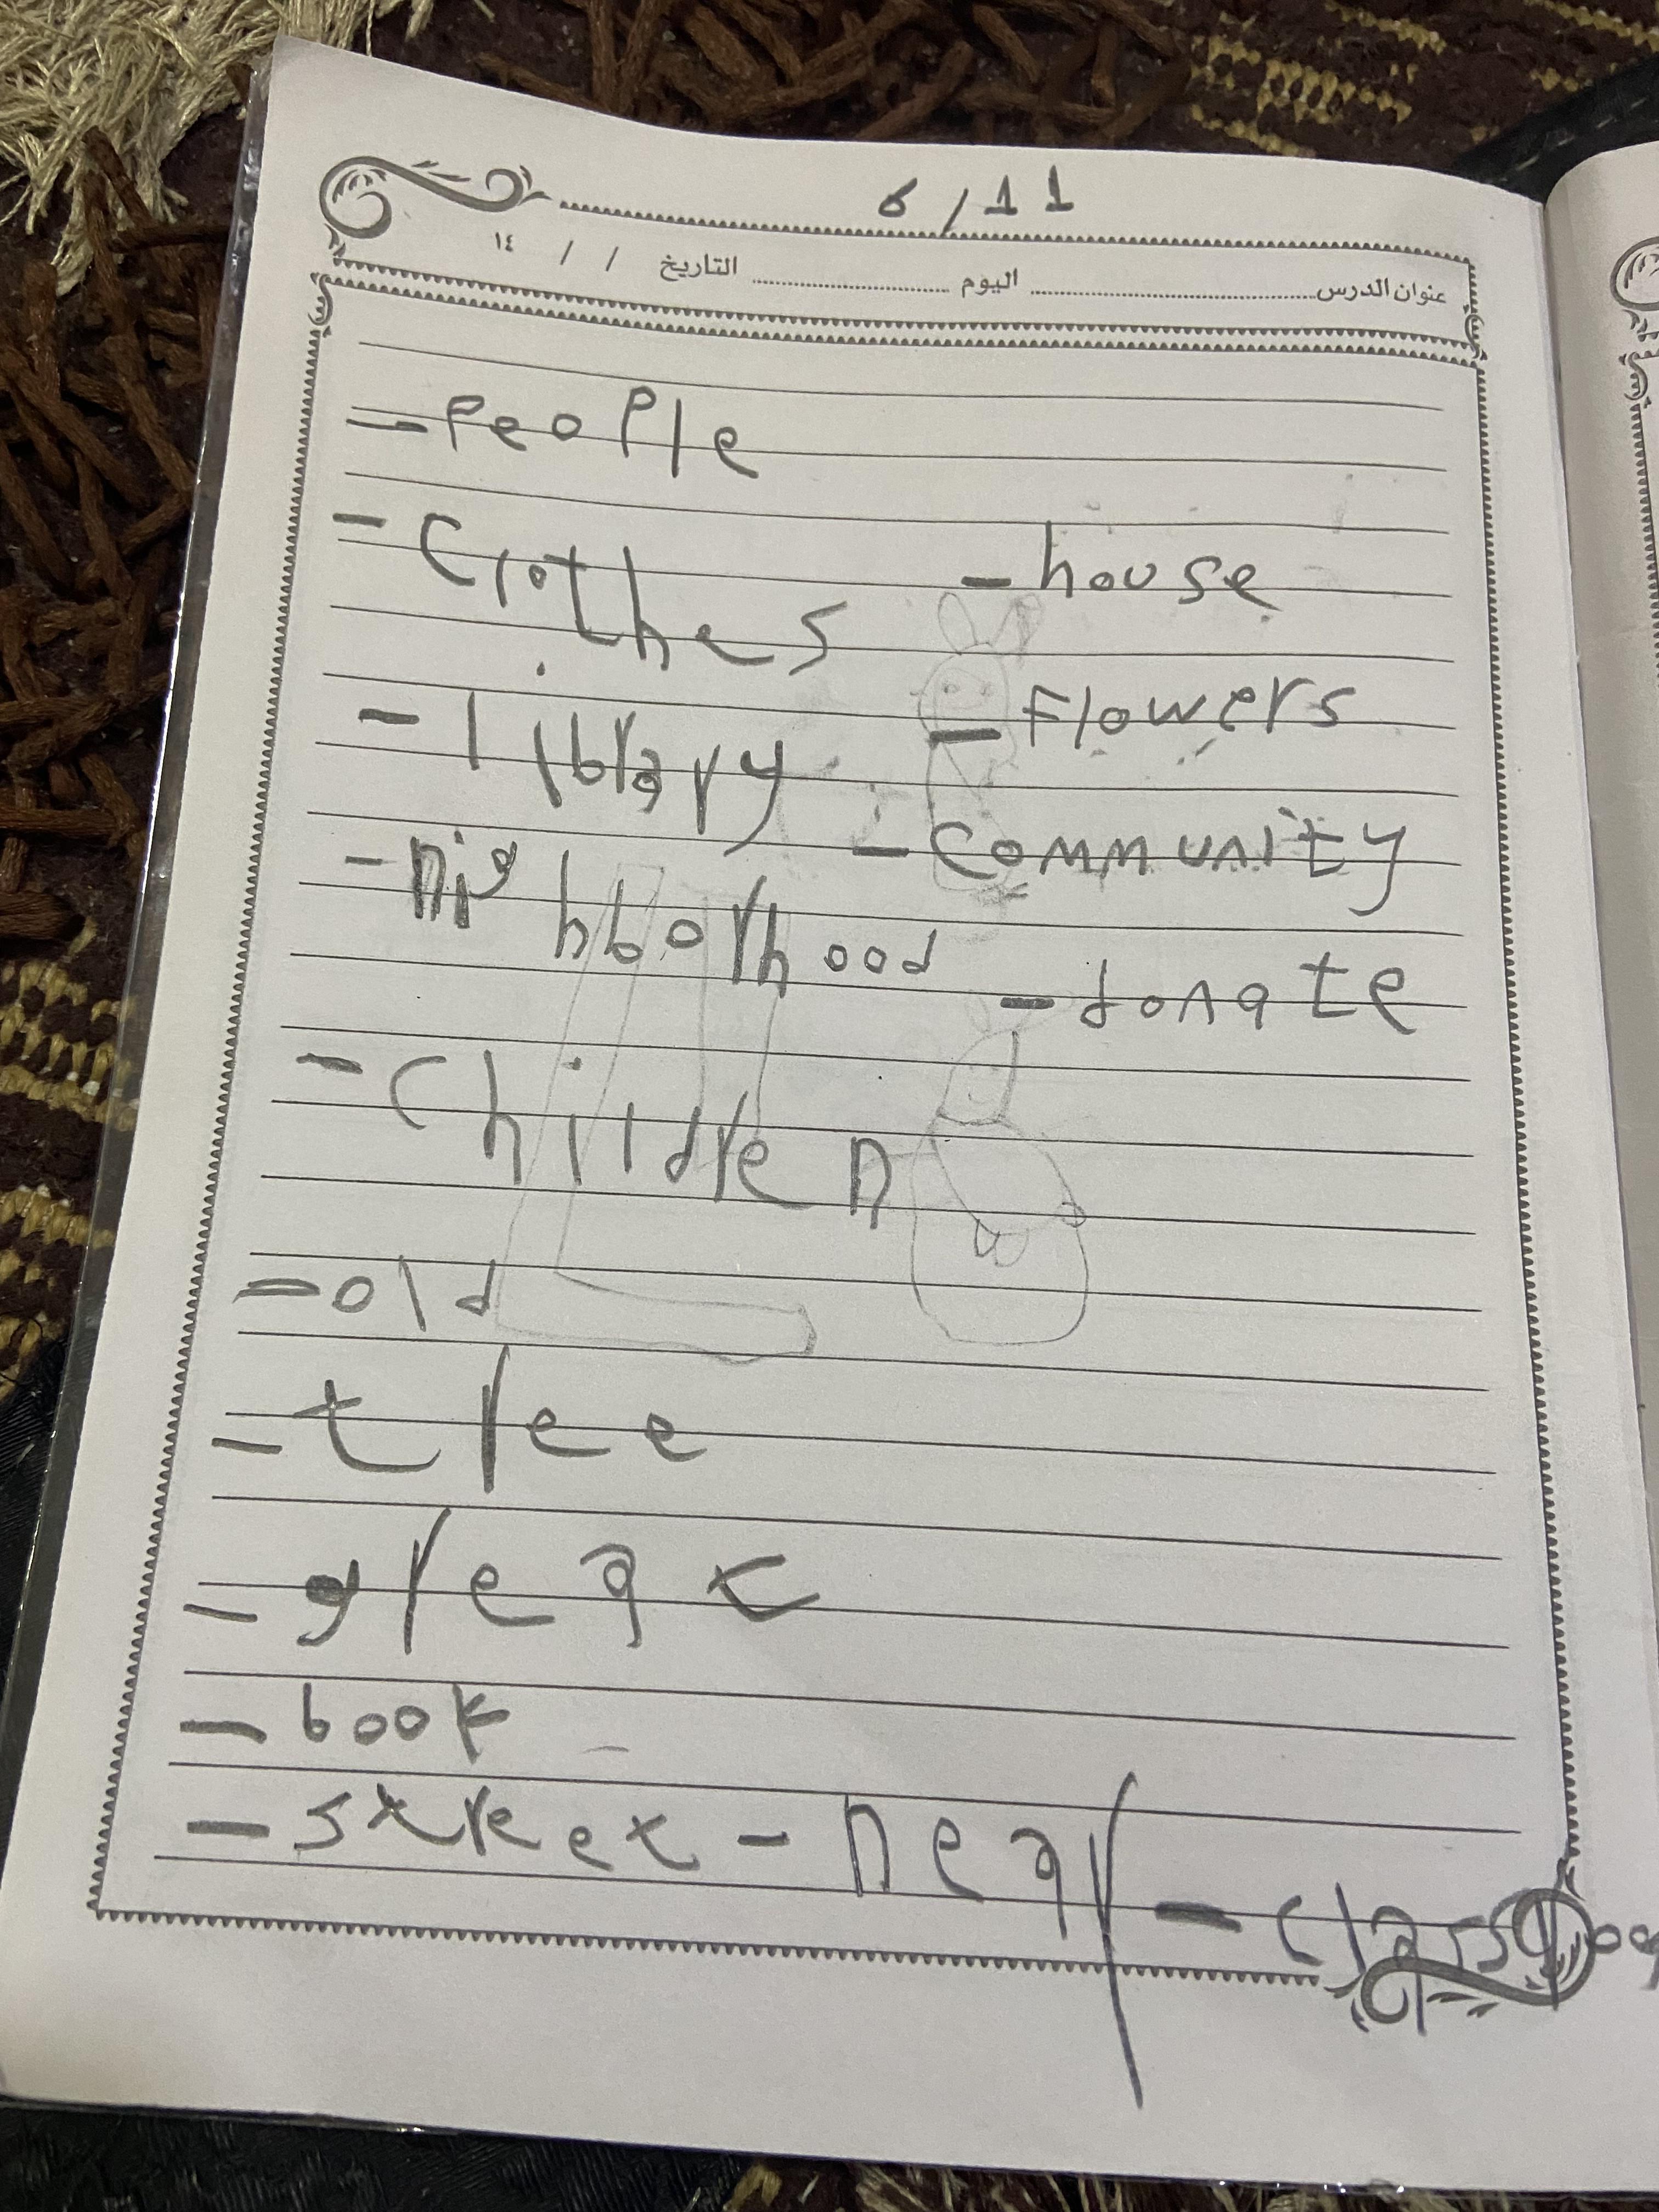 6/11
عنوان الدرس اليوم التاريخ / / ١٤
- people
- clothes
- house
- library
- Flowers
- nighborhood
- community
- donate
- children
- old
- tree
- great
- book
- street - near - classroo